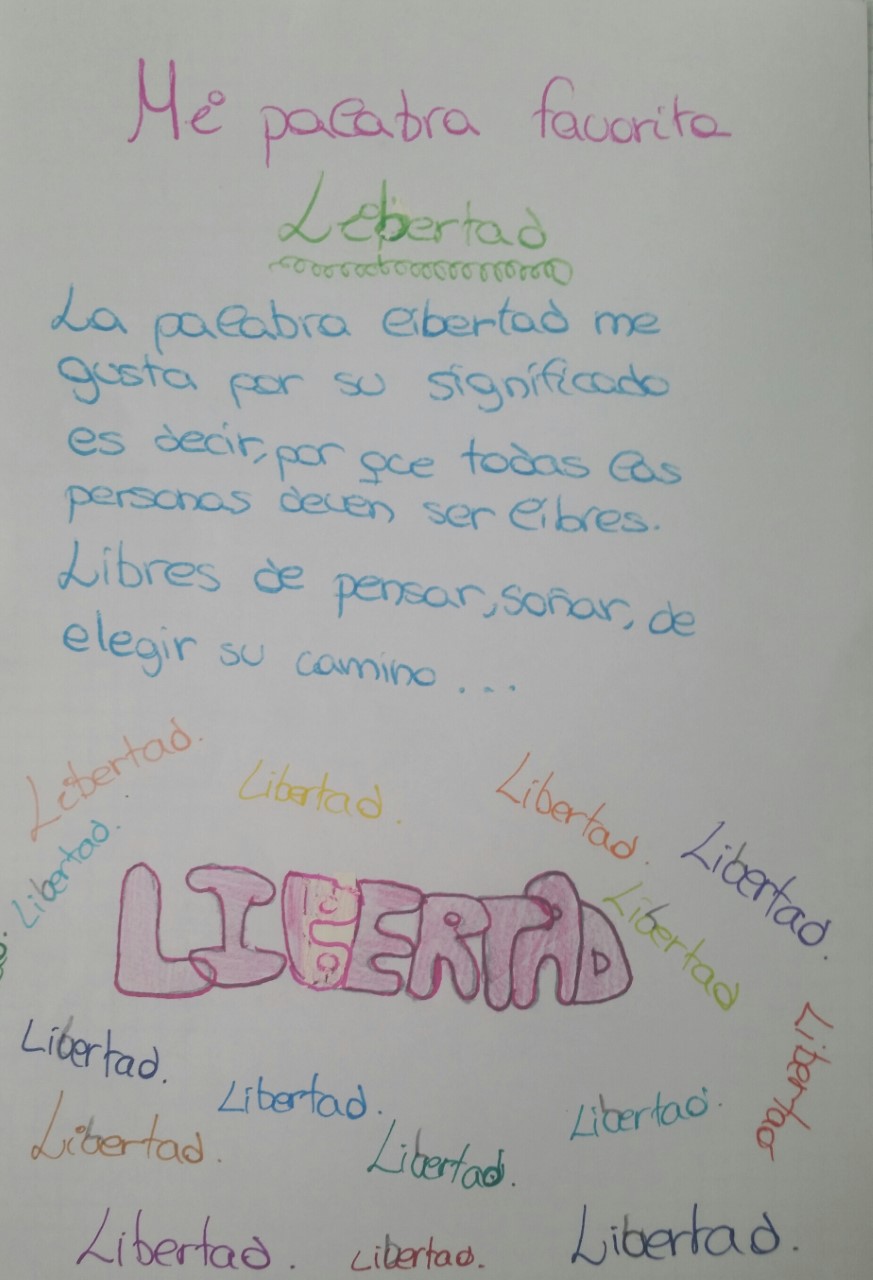 Mi palabra favorita
Libertad
La palabra libertad me
gusta por su significado
es decir, por qce todas las
personas deven ser libres.
Libres de pensar, soñar, de
elegir su camino...
Libertad.
Libertad.
Libertad.
Libertad.
Libertad.
LIBERTAD
Libertad
Libertad
Libertad.
Libertad.
Libertad.
Libertad.
Libertad.
Libertad.
Libertad.
Libertad.